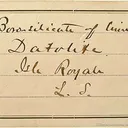 Boro-silicate of lime
Datolite.
Isle Royale
L. S.